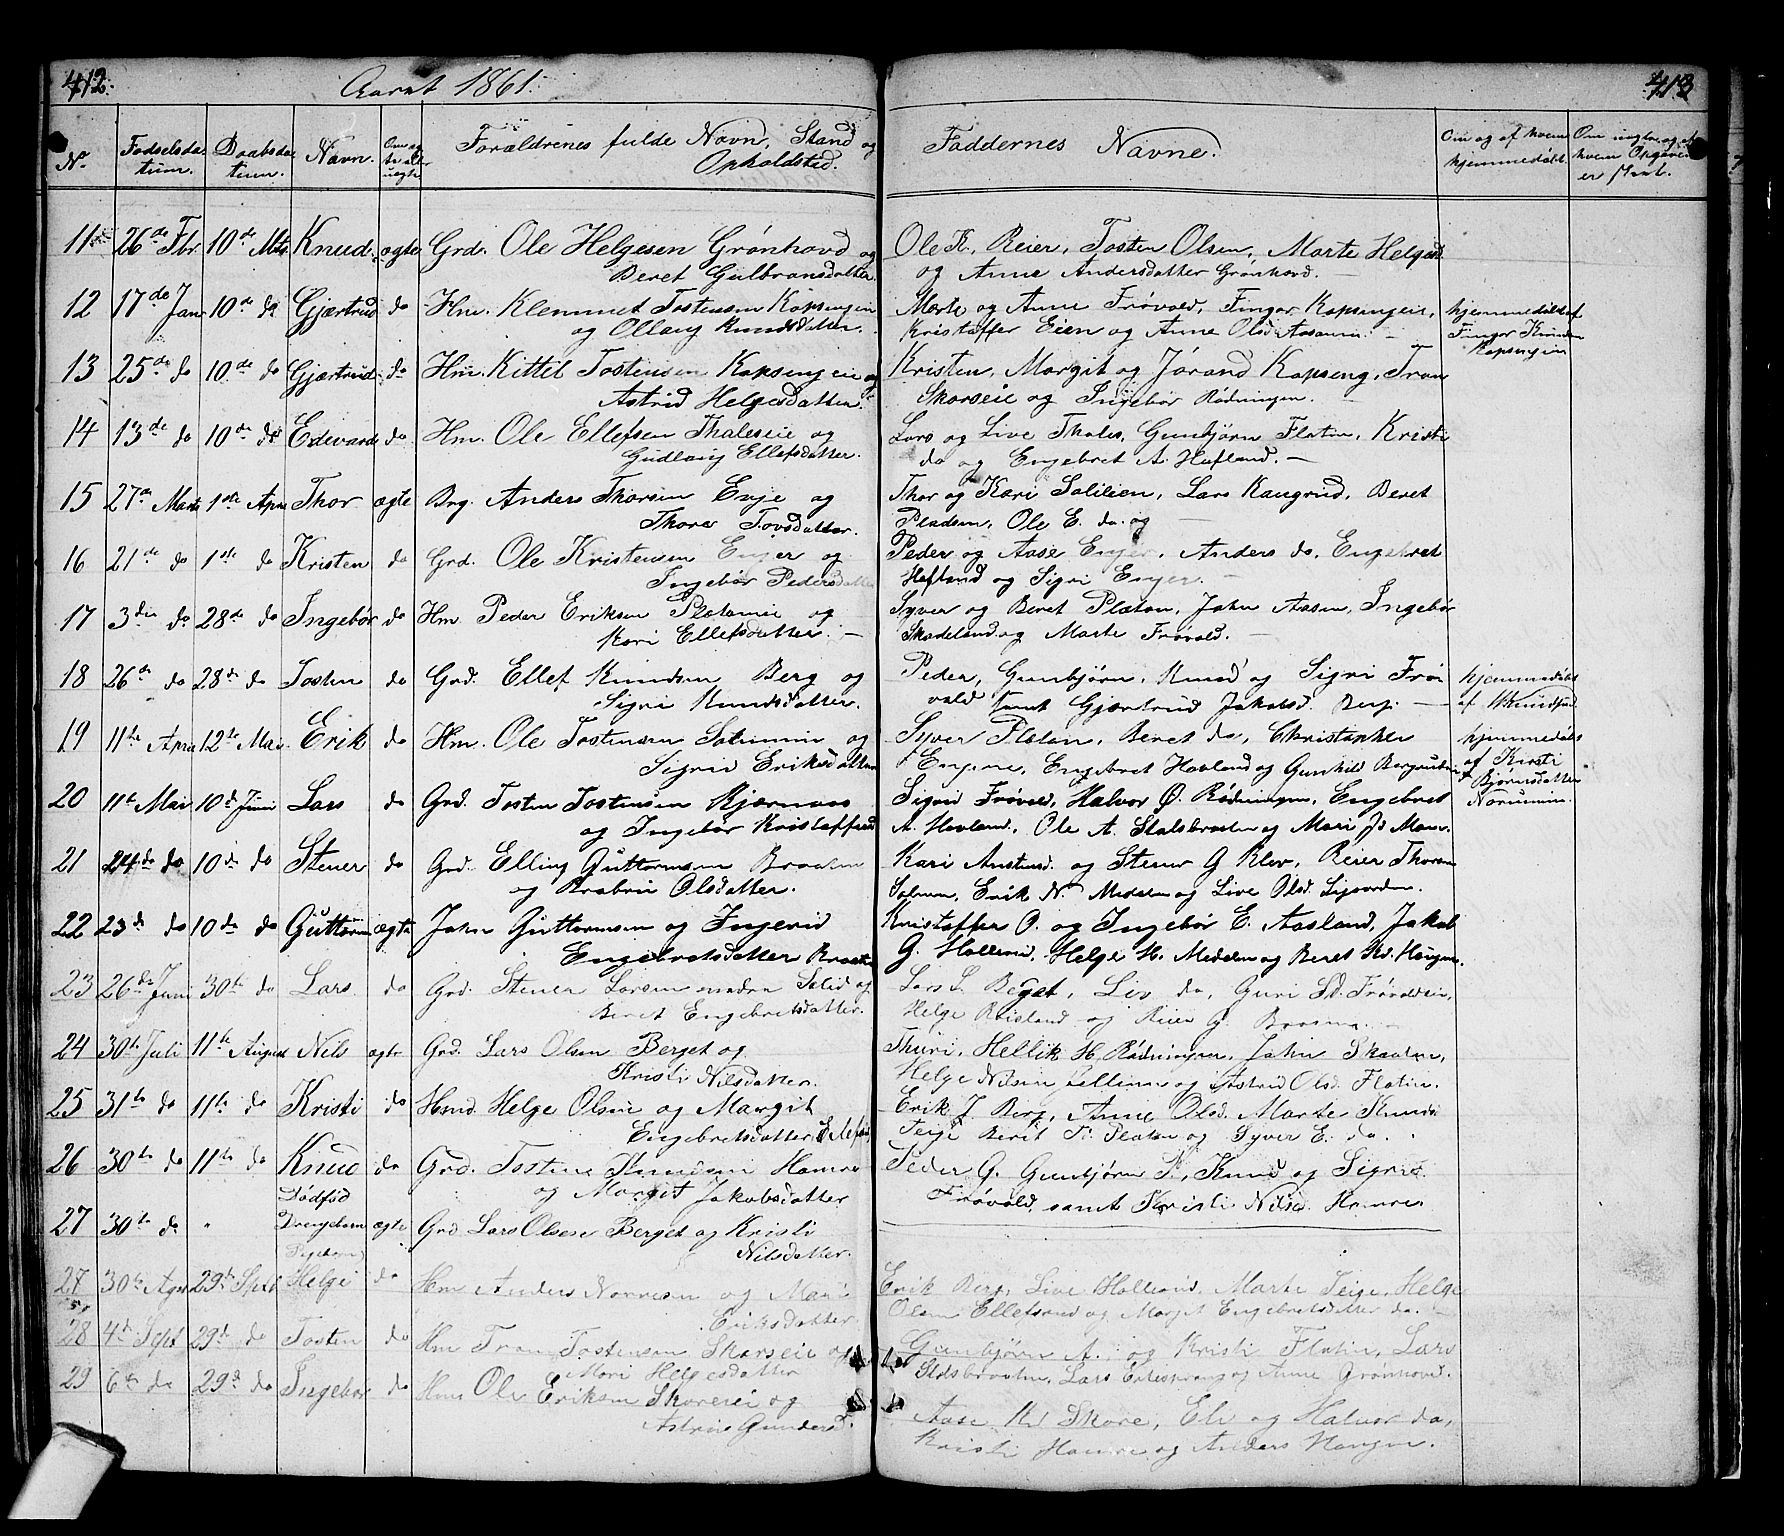 412. Aaret 1861. 413
No. Fødselsda tum. Daabsda tum. Navn. Om ægte eller uægte Forældrenes fulde Navn, Stand og Opholdsted. Faddernes Navne. Om og af hvem hjemmedøbt. Om
11 26de Fbr 10de Mts Knud ægte Grd. Ole Helgesen Grønhovd og Ole K. Reier, Tosten Olsen, Marte Helgesd
Beret Gulbransdatter og Anne Andersdatter Grønhovd.
12 17de Jan 10de do Gjærtrud do Hm. Klemmet Tostensen Kopsengeie Marte og Anne Frøvold, Fingar Kopsengeie, hjemmedøbt af
og Ollaug Knudsdatter. Kristoffer Eien og Anne Olsd. Aasom. Fingar Knudsen
Kopsengeie
13 25de do 10de do Gjærtrud do Hm. Kittil Tostensen Kopsengeie og Kristen, Margit og Jørand Kopseng, Tron
Astrid Helgesdatter. Skorseie og Ingebør Rødningen.
14 13de do 10de do Edevard do Hm. Ole Ellefsen Thaleseie og Lars og Live Thales, Gunbjørn Flatin, Kristi
Gudlaug Ellefsdatter. do og Engebret A. Hafland.
15 27de Marts 1ste Apr Thor ægte Brg. Anders Thorsen Evje og Thor og Kari Solilien, Lars Kaugrud, Beret
Thore Tovsdatter. Pladsen, Ole E. do. og
16 21de do 1ste do Kristen do Grd. Ole Kristensen Enger og Peder og Aase Enger, Anders do, Engebret
Ingebør Pedersdatter Hafland og Sigri Enger.
17 3die do 28de do Ingebør do Hm. Peder Eriksen Platoneie og Syver og Beret Platon, John Aasen, Ingebør
Kari Ellefsdatter. Skadeland og Marte Frøvold.
18 26de do 28de do Tosten do Grd. Ellef Knudsen Berg og Peder, Gunbjørn, Knud og Sigri Frø hjemmedøbt
Sigri Knudsdatter. vold samt Gjærtrud Jakobsd. Berg. af
19 11te April 12te Mai Erik do Hm. Ole Tostensen og Syver Platon, Beret do, Christopher hjemmedøbt
Sigrid Eriksdatter Engene, Engebret Hovland og Gunhild af Kirsti
Bjørnsdatter
20 11te Mai 10de Juni Lars do Grd. Tosten Tostensen Kjærnaas Sigrid Frøvold, Halvor Ø. Rødningen, Engebret
og Ingebør Kristoffersd A. Hovland, Ole A. Stolsbraaten og Mari Jd Moen.
21 24de do 10de do Stener do Grd. Elling Guttormsen Braaten Kari og Stener G. Klev, Reier Thorsen
og Olsdatter. Erik N. Medalen og Live Olsd.
22 23de do 10de do Guttorm ægte John Guttormsen og Ingerid Kristoffer O. og Ingebør E. Aasland, Jakob
Engebretsdatter Braaten G. Hollerud, Helge H. Medalen og Beret Kd. Haugen.
23 26de Juni 30te do Lars do Grd. Stener Larsen nedre Solid og Lars L. Berget, Liv do, Guri
Beret Engebretsdatter. Helge Risland og Reier G.
24 30te Juli 11te August Nils ægte Grd. Lars Olsen Berget og Thuri, Hellik H. Rødningen, John
Kristi Nilsdatter. Helge Nilsen og Astrid Olsd. Flatin.
25 31te do 11te do Kristi do Hmd. Helge Olsen og Margit Erik J. Berg, Anne Olsd. Marte Knuds
Engebretsdatter Teige Berit T. Platon og Syver E. do.
26 30te do 11te do Knud do Grd. Tosten Knudsen Hamre Peder G. Gunbjørn P., Knud og Sigrid
og Margit Jakobsdatter Frøvold, samt Kristi Nilsd. Hamre.
27 30te do " Dødfød Drengebarn ægte Grd Lars Olsen Berget og Kristi
Nilsdatter.
27 30te Agu 29de Sptb Pigebarn Helge do Hm Anders og Mari Erik Berg, Live Hollerud, Marte Teige, Helge
Eriksdatter. Olsen Ellefsrud og Margit Engebretsdatter do.
28 4de Sept 29de do Tosten do Hm Tron Tostensen Skorseie og Gunbjørn A. og Kristi Flatin, Lars
Mari Helgesdatter Stolsbraaten, Lars og Anne Grønhovd.
29 6te do 29de do Ingebør do Hm Ole Eriksen Skoreeie og Aase Kd Skore, Eli og Halvor do,
Astrid Gundersd. Kristi Hamre og Anders Haugen.